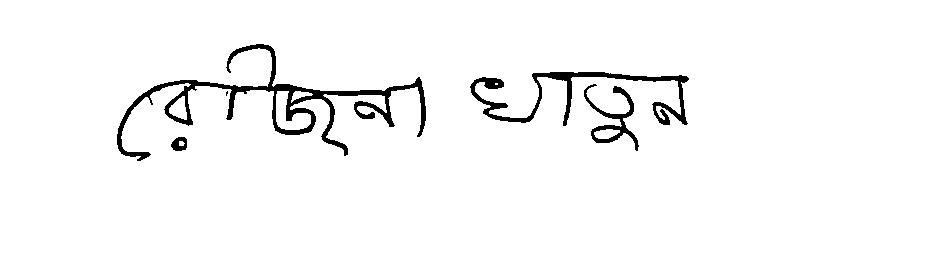 রোজিনা খাতুন